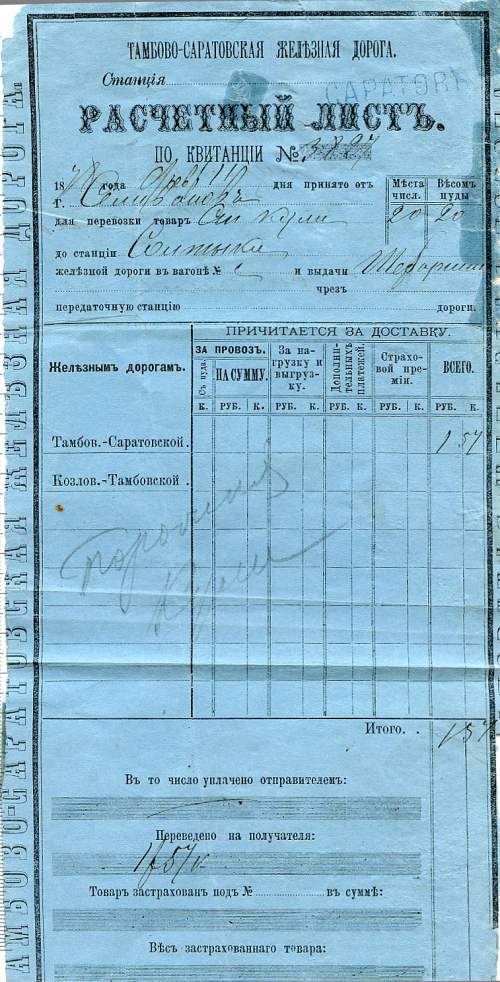 ТАМБОВО-САРАТОВСКАЯ ЖЕЛѢЗНАЯ ДОРОГА.
Станція
САРАТОВЪ
РАСЧЕТНЫЙ ЛИСТЪ.
ПО КВИТАНЦІИ №
18 года дня принято отъ
Мѣста числ.
Вѣсомъ пуды
г.
для перевозки товаръ кули 20 20
до станціи Салтыки
желѣзной дороги въ вагонѣ № и выдачи
чрезъ
передаточную станцію дороги.
ПРИЧИТАЕТСЯ ЗА ДОСТАВКУ.
Желѣзнымъ дорогамъ.
ЗА ПРОВОЗЪ.
Съ пуда.
НА СУММУ.
За нагрузку и выгрузку.
Дополнительныхъ платежей.
Страховой преміи.
ВСЕГО.
К. РУБ. К. РУБ. К. РУБ. К. РУБ. К. РУБ. К.
Тамбов.-Саратовской. 1 57
Козлов.-Тамбовской.
Порожние
Кули
Итого. . 1 57
Въ то число уплачено отправителемъ:
Переведено на получателя:
1 р 57 к
Товаръ застрахованъ подъ № въ суммѣ:
Вѣсъ застрахованнаго товара:
ТАМБОВО-САРАТОВСКАЯ ЖЕЛѢЗНАЯ ДОРОГА.